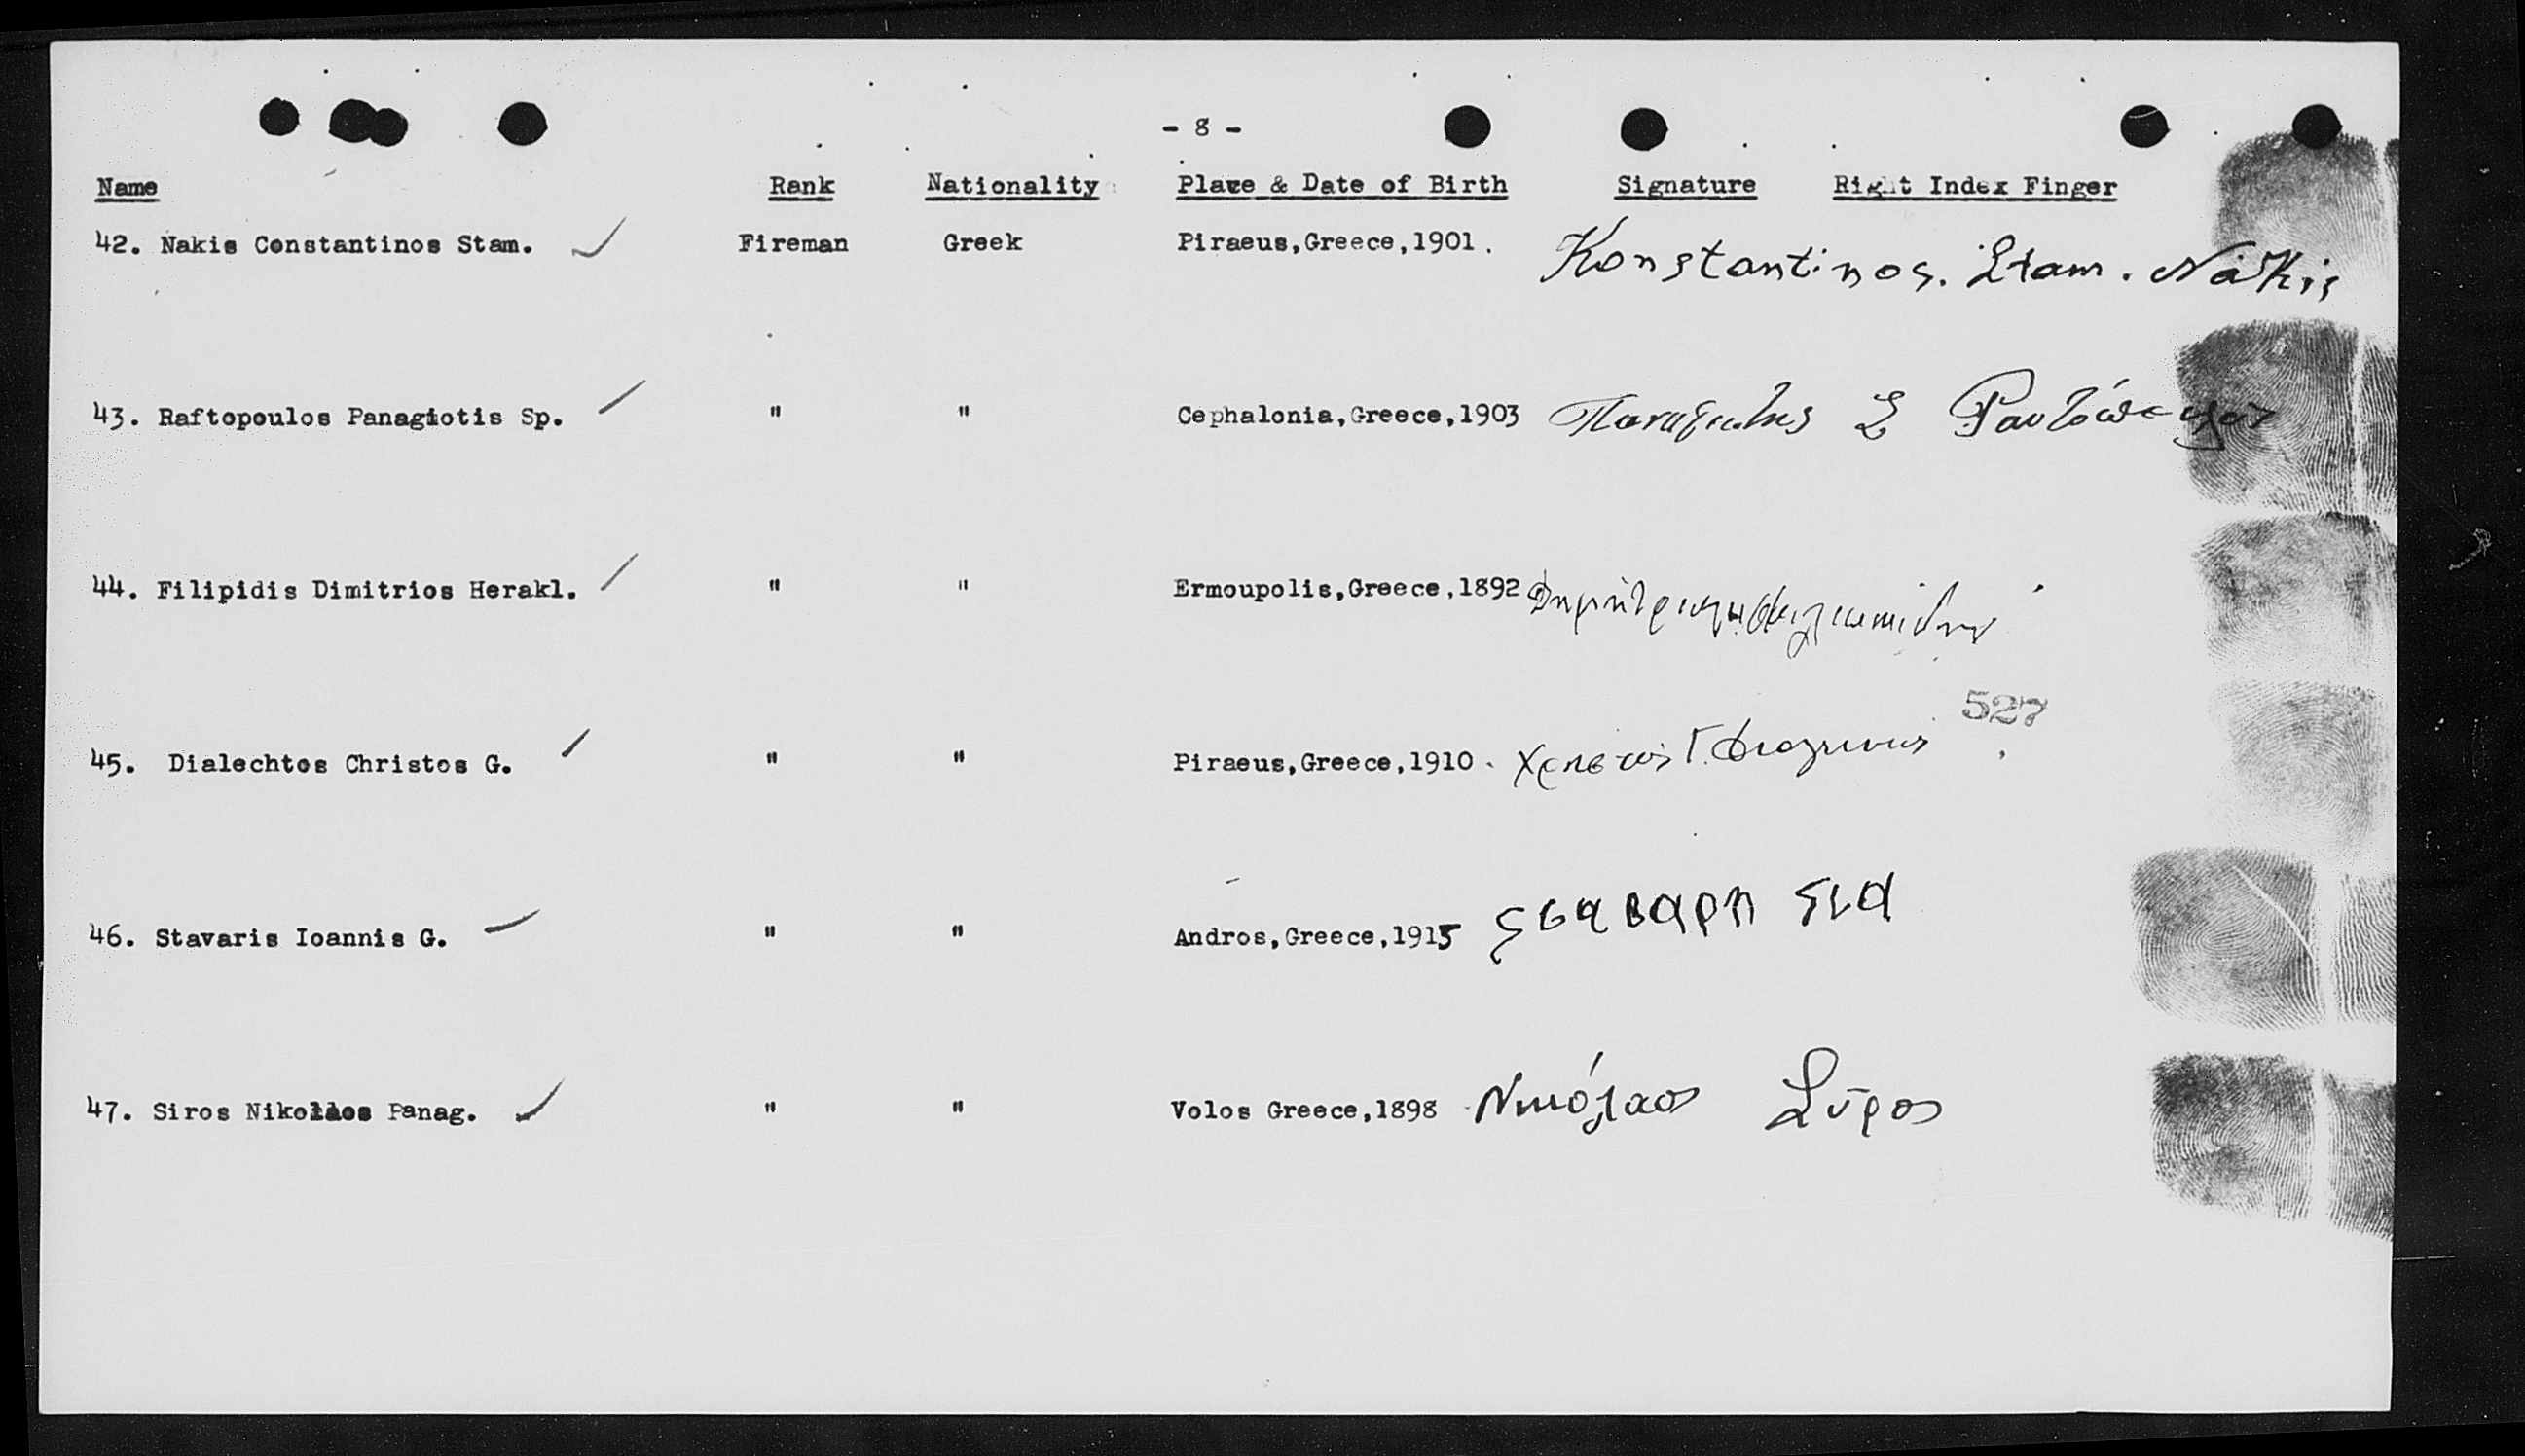 - 8 -
Name Rank Nationality Place & Date of Birth Signature Right Index Finger
42. Nakis Constantinos Stam. Fireman Greek Piraeus,Greece,1901. Konstantinos. Stam. Nakis
43. Raftopoulos Panagiotis Sp. " " Cephalonia,Greece,1903 Παναγιωτης Σ Ραυτόπουλος
44. Filipidis Dimitrios Herakl. " " Ermoupolis,Greece,1892
527
45. Dialechtos Christos G. " " Piraeus,Greece,1910. Χρηστος Γ.
46. Stavaris Ioannis G. " " Andros,Greece,1915 ςταβαρη
47. Siros Nikolaos Panag. " " Volos Greece,1898 Νικόλαος Σύρος